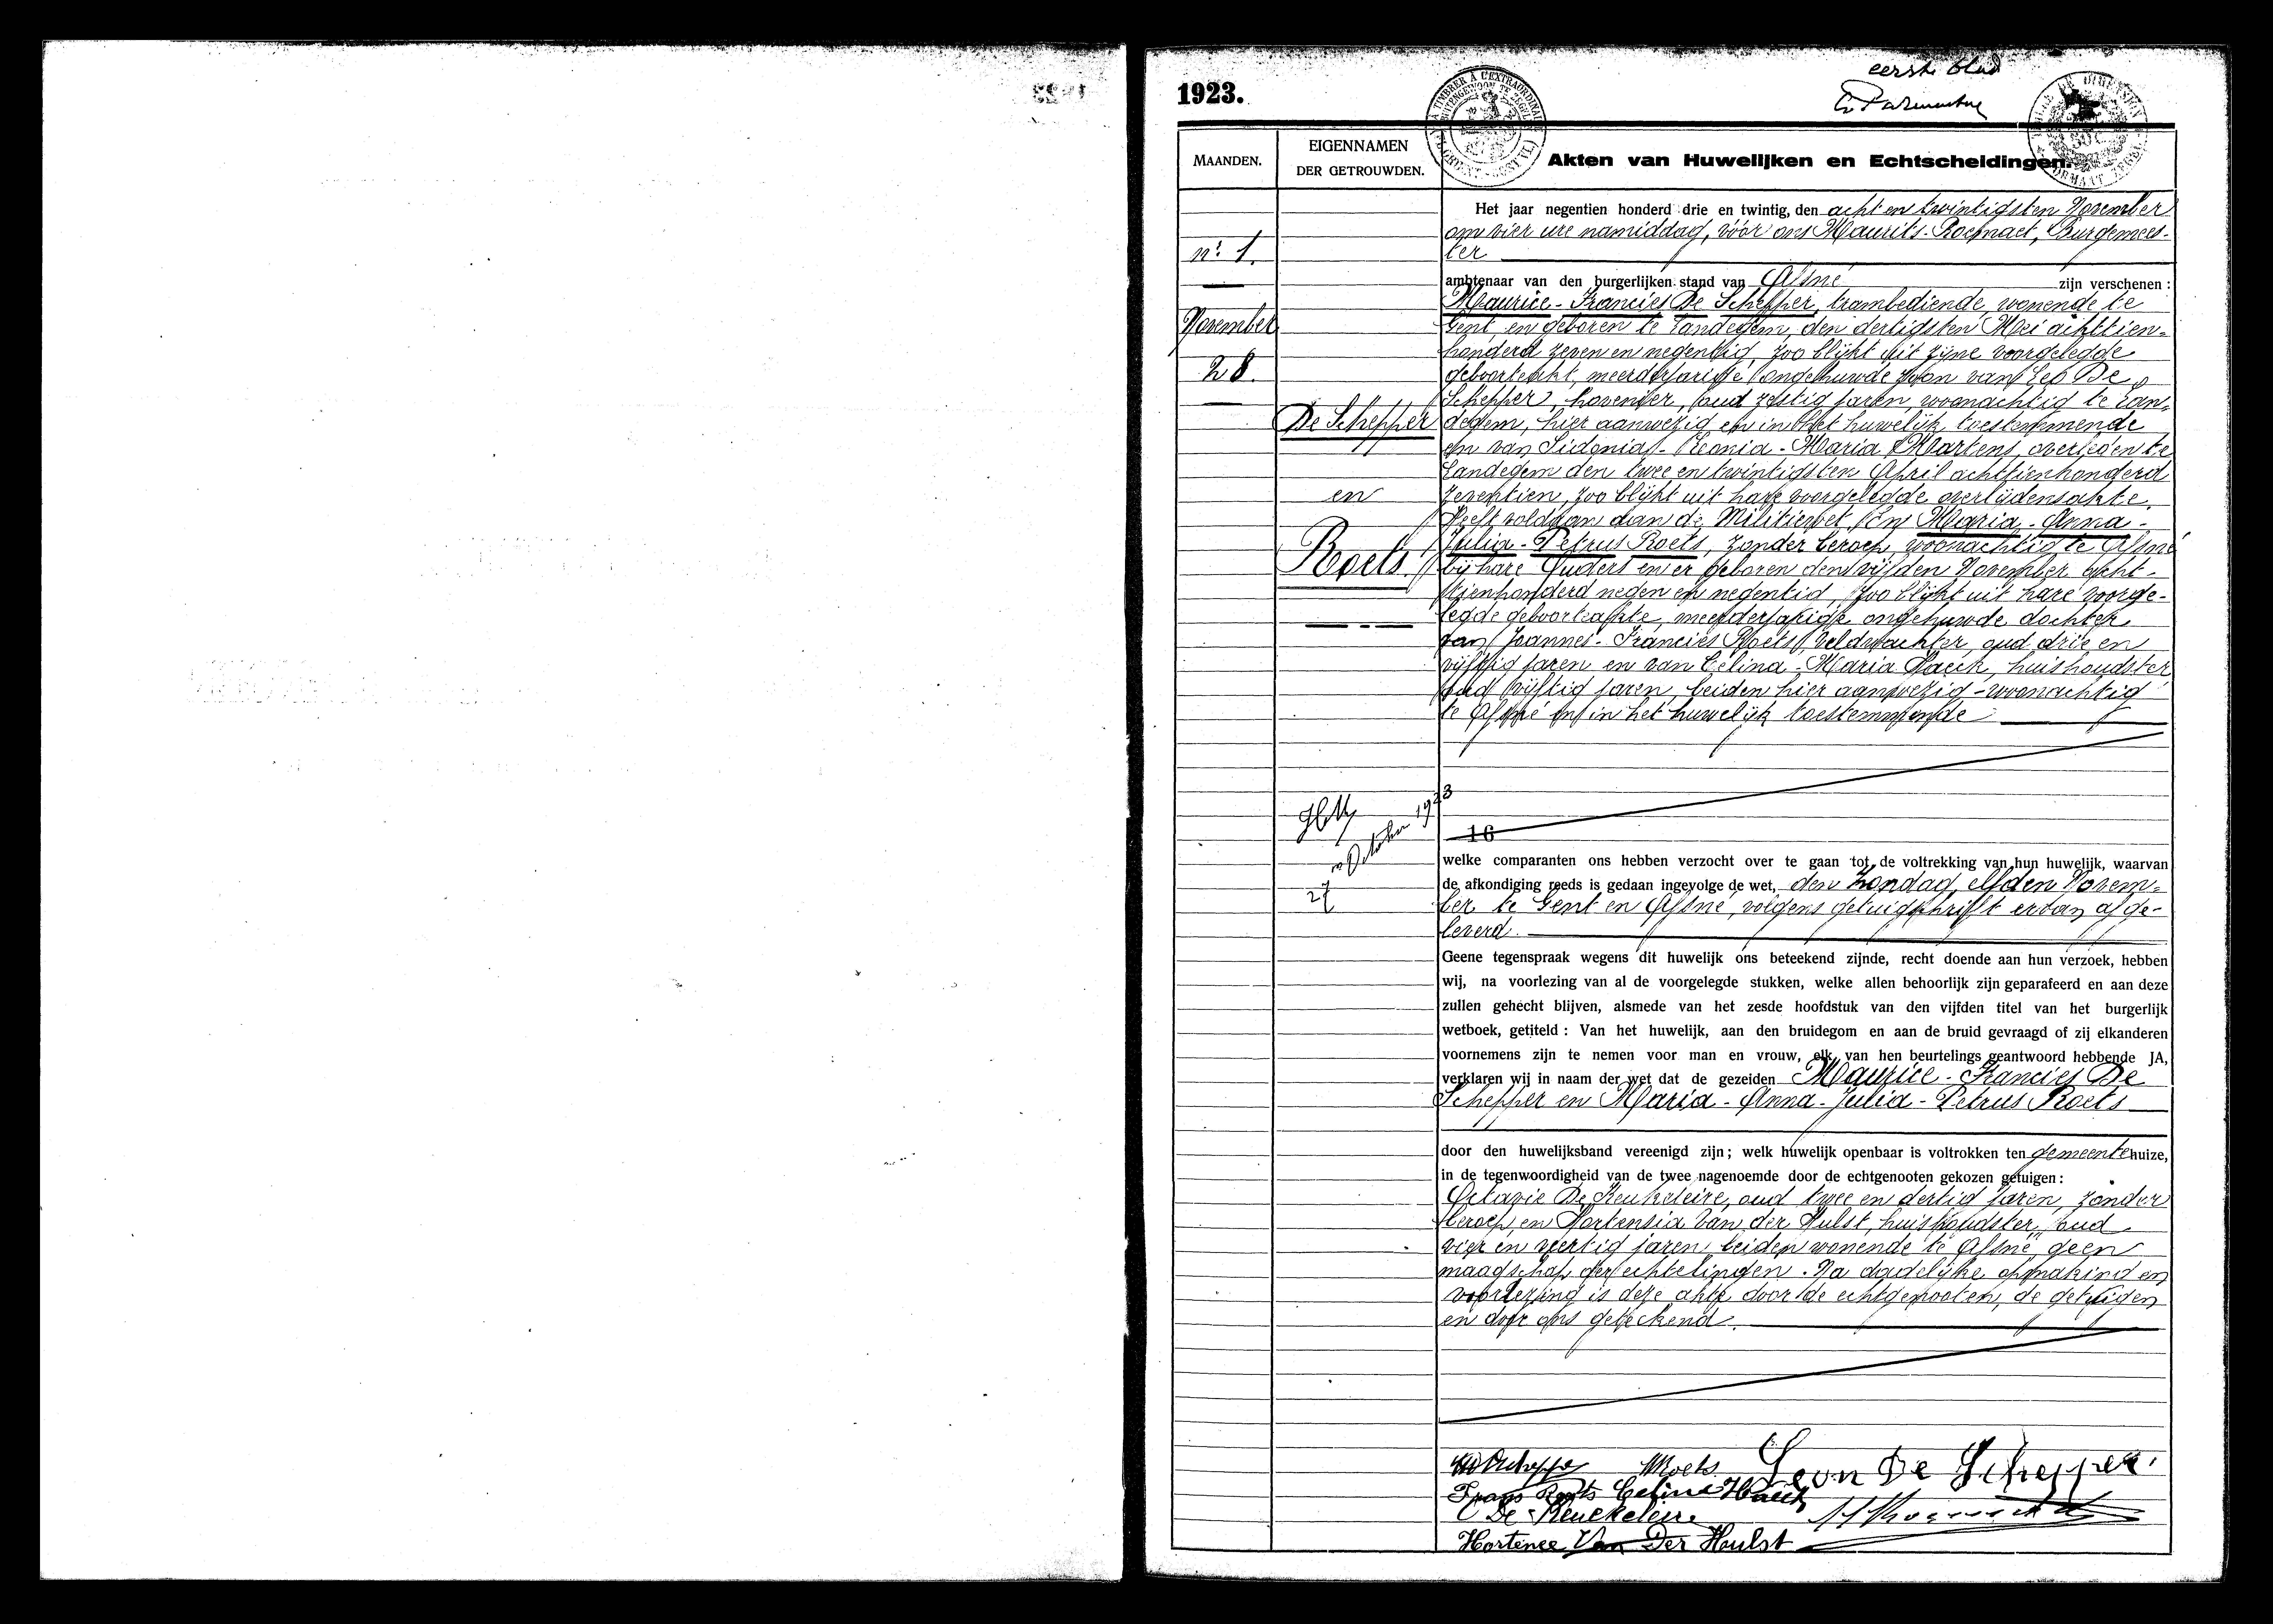 1923.
eerste blad
MAANDEN.
EIGENNAMEN
DER GETROUWDEN.
Akten van Huwelijken en Echtscheidingen.
n.^r 1.
November
28.
De Schepper
en
Roets
October 1923
27
Het jaar negentien honderd drie en twintig, den acht en twintigsten November
om vier ure namiddag, vóór ons Maurits Roegnaet, Burgemees-
ter
ambtenaar van den burgerlijken stand van Afsné zijn verschenen :
Maurice - Francies De Schepper, trambediende, wonende te
Gent en geboren te Landegem, den dertigsten Mei achttien-
honderd zeven en negentig, zoo blijkt uit zijne voorgelegde
geboorteakt, meerderjarige ongehuwde zoon van Leo De
Schepper, hovenier, oud zestig jaren, woonachtig te Lan-
degem, hier aanwezig en in het huwelijk toestemmende
en van Sidonia - Leonia - Maria Martens, overleden te
Landegem den twee en twintigsten April achttienhonderd
zeventien, zoo blijkt uit hare voorgelegde overlijdensakte.
Heeft voldaan aan de Militiewet. En Maria - Anna -
Julia - Petrus Roets, zonder beroep, woonachtig te Afsné
bij hare Ouders en er geboren den vijfden November acht-
tienhonderd negen en negentig, zoo blijkt uit hare voorge-
legde geboorteakte, meerderjarige ongehuwde dochter
van Joannes - Francies Roets, veldwachter, oud drie en
vijftig jaren en van Celina - Maria Haeck, huishoudster
oud vijftig jaren, beiden hier aanwezig - woonachtig
te Afsné en in het huwelijk toestemmende
16
welke comparanten ons hebben verzocht over te gaan tot de voltrekking van hun huwelijk, waarvan
de afkondiging reeds is gedaan ingevolge de wet, den Zondag, elfden Novem-
ber te Gent en Afsné, volgens getuigschrift ervan afge-
leverd.
Geene tegenspraak wegens dit huwelijk ons beteekend zijnde, recht doende aan hun verzoek, hebben
wij, na voorlezing van al de voorgelegde stukken, welke allen behoorlijk zijn geparafeerd en aan deze
zullen gehecht blijven, alsmede van het zesde hoofdstuk van den vijfden titel van het burgerlijk
wetboek, getiteld : Van het huwelijk, aan den bruidegom en aan de bruid gevraagd of zij elkanderen
voornemens zijn te nemen voor man en vrouw, elk van hen beurtelings geantwoord hebbende JA,
verklaren wij in naam der wet dat de gezeiden Maurice - Francies De
Schepper en Maria - Anna - Julia - Petrus Roets
door den huwelijksband vereenigd zijn ; welk huwelijk openbaar is voltrokken ten gemeentehuize,
in de tegenwoordigheid van de twee nagenoemde door de echtgenooten gekozen getuigen :
Octavie De Keukeleire, oud twee en dertig jaren, zonder
beroep, en Hortensia Van der Hulst, huishoudster, oud
vier en veertig jaren, beiden wonende te Afsné, geen
maagschap der echtelingen. Na dadelijke opmaking en
voorlezing is deze akte door de echtgenooten, de getuigen
en door ons geteekend.
Roets Leon De Schepper
Frans Roets Celina Haeck
De Keukeleire
Hortence Van Der Hulst